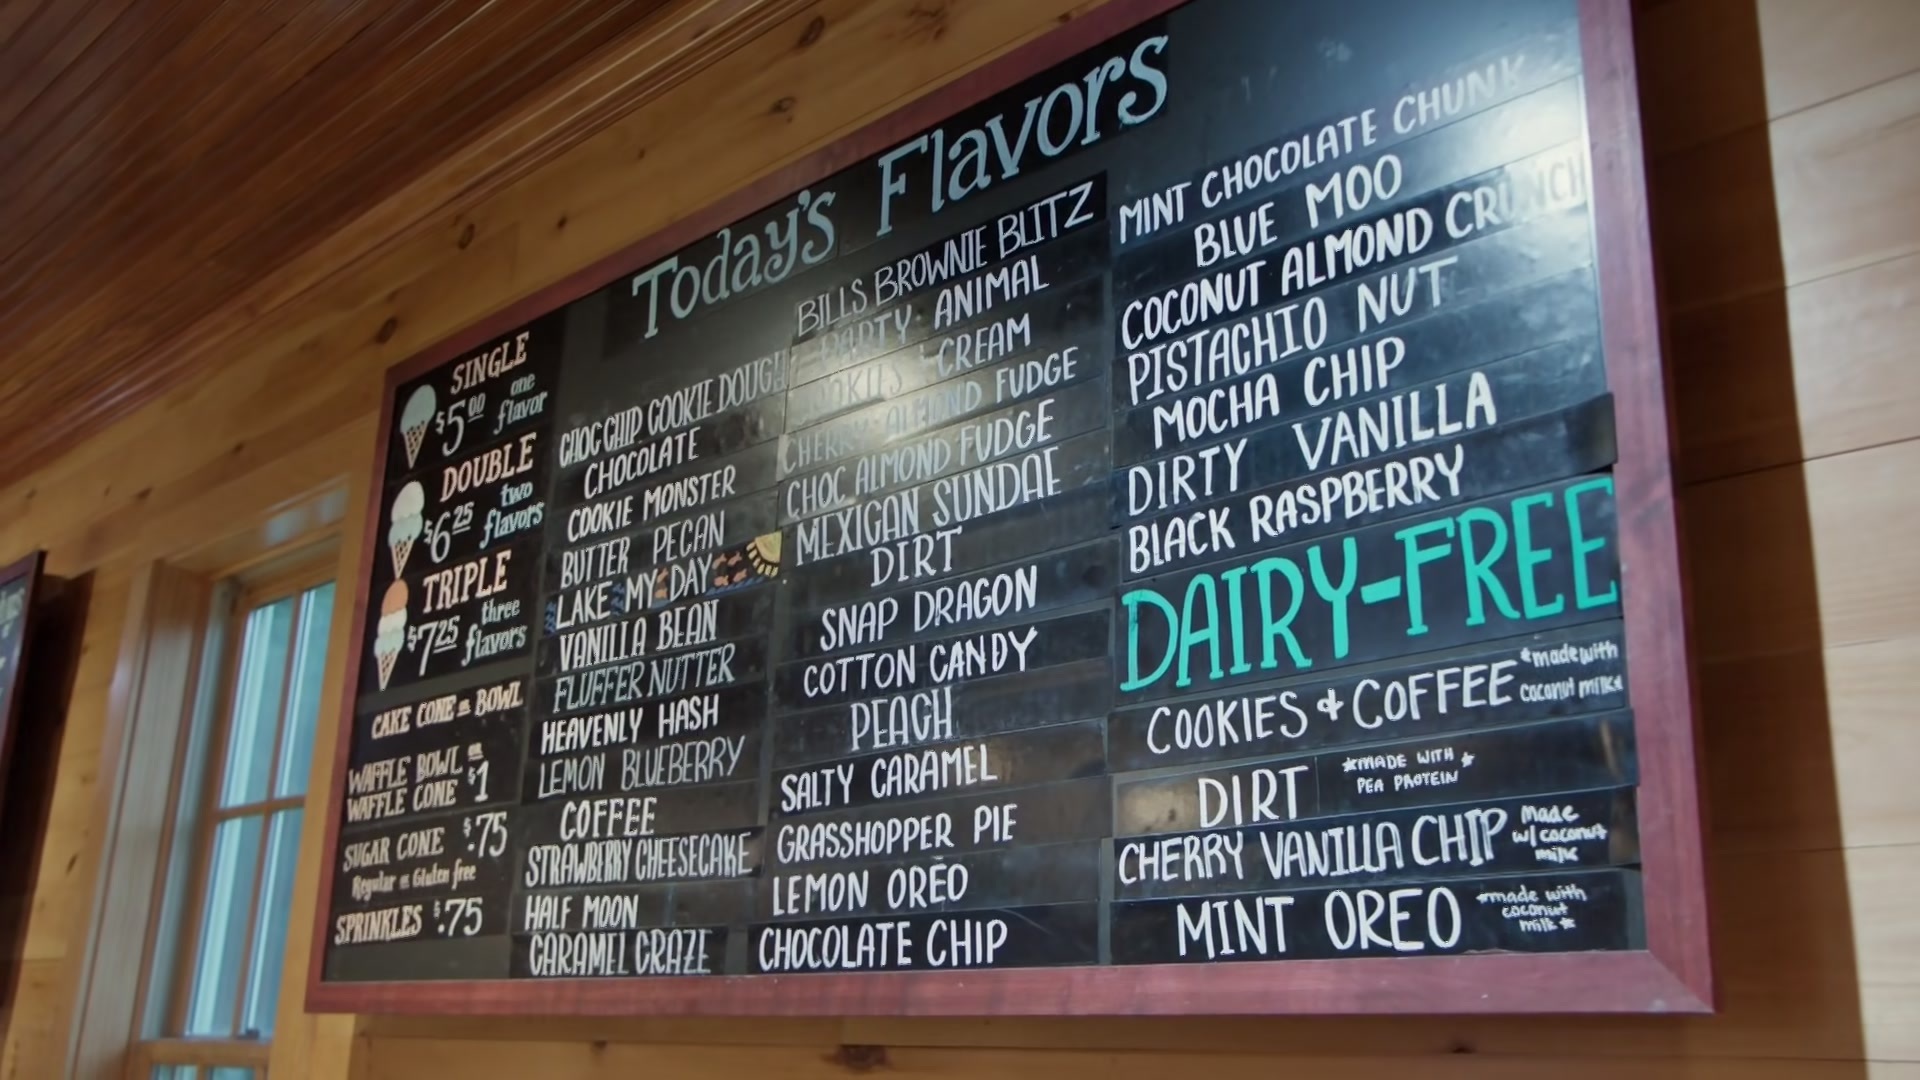 Today's Flavors
SINGLE
$5.00 one flavor
DOUBLE
$6.25 two flavors
TRIPLE
$7.25 three flavors
CAKE CONE or BOWL
WAFFLE BOWL or
WAFFLE CONE $1
SUGAR CONE $.75
Regular or Gluten free
SPRINKLES $.75
CHOC CHIP COOKIE DOUGH
CHOCOLATE
COOKIE MONSTER
BUTTER PECAN
LAKE MY DAY
VANILLA BEAN
FLUFFER NUTTER
HEAVENLY HASH
LEMON BLUEBERRY
COFFEE
STRAWBERRY CHEESECAKE
HALF MOON
CARAMEL CRAZE
BILLS BROWNIE BLITZ
PARTY ANIMAL
COOKIES & CREAM
CHERRY ALMOND FUDGE
CHOC ALMOND FUDGE
MEXICAN SUNDAE
DIRT
SNAP DRAGON
COTTON CANDY
PEACH
SALTY CARAMEL
GRASSHOPPER PIE
LEMON OREO
CHOCOLATE CHIP
MINT CHOCOLATE CHUNK
BLUE MOO
COCONUT ALMOND CRUNCH
PISTACHIO NUT
MOCHA CHIP
DIRTY VANILLA
BLACK RASPBERRY
DAIRY-FREE
COOKIES & COFFEE *made with coconut milk*
DIRT *MADE WITH PEA PROTEIN*
CHERRY VANILLA CHIP Made w/ coconut milk
MINT OREO *made with coconut milk*